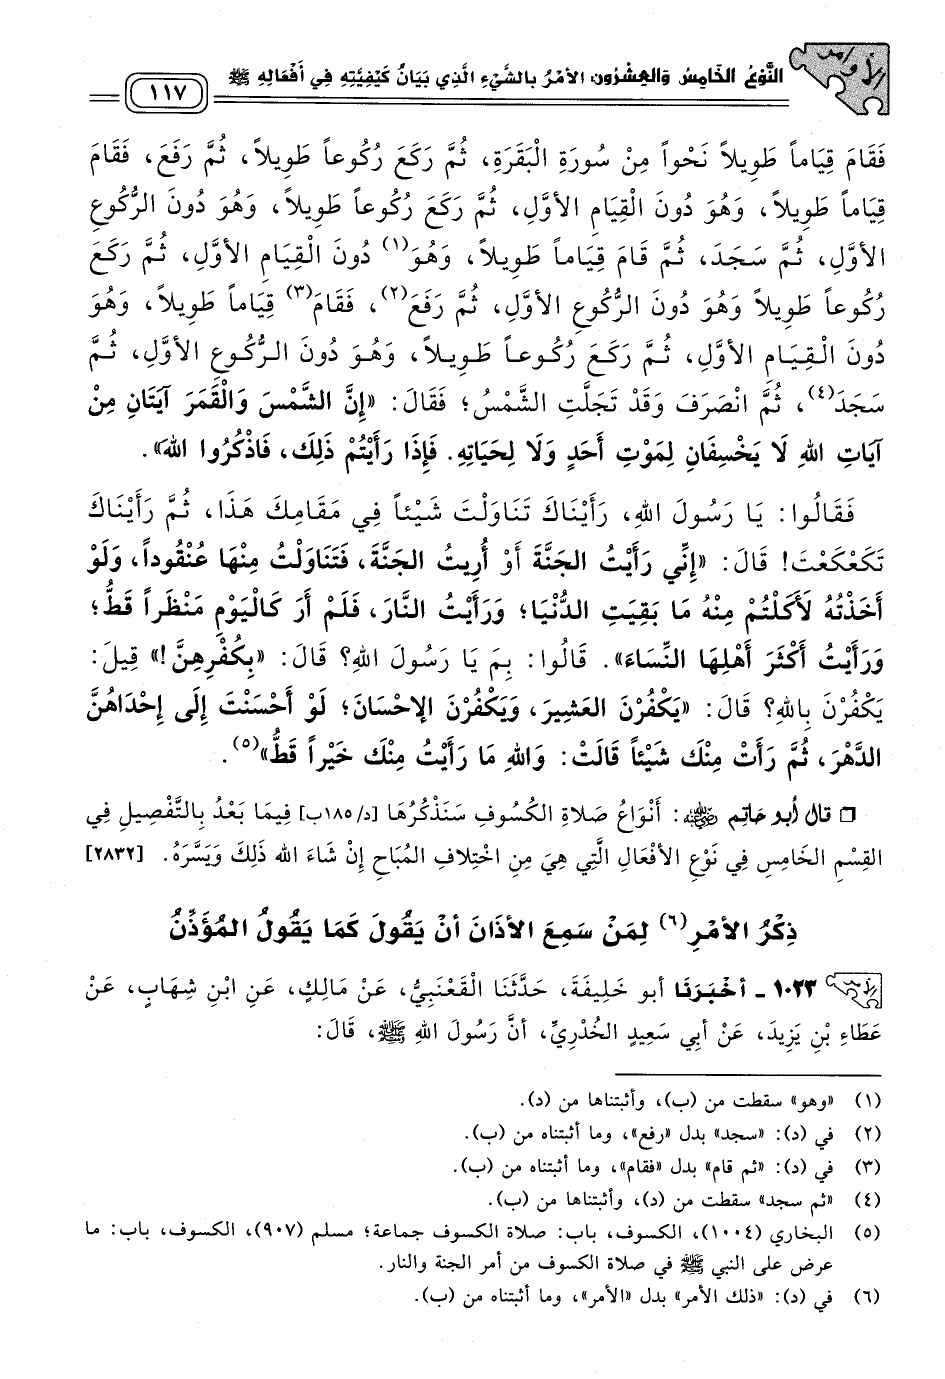 الأوامر
النَّوْعُ الخَامِسُ وَالعِشْرُون: الأَمْرُ بِالشَّيْءِ الَّذِي بَيَانُ كَيْفِيَّتِهِ فِي أَفْعَالِهِ ﷺ
١١٧
فَقَامَ قِيَاماً طَوِيلاً نَحْواً مِنْ سُورَةِ الْبَقَرَةِ، ثُمَّ رَكَعَ رُكُوعاً طَوِيلاً، ثُمَّ رَفَعَ، فَقَامَ
قِيَاماً طَوِيلاً، وَهُوَ دُونَ الْقِيَامِ الأَوَّلِ، ثُمَّ رَكَعَ رُكُوعاً طَوِيلاً، وَهُوَ دُونَ الرُّكُوعِ
الأَوَّلِ، ثُمَّ سَجَدَ، ثُمَّ قَامَ قِيَاماً طَوِيلاً، وَهُوَ(١) دُونَ الْقِيَامِ الأَوَّلِ، ثُمَّ رَكَعَ
رُكُوعاً طَوِيلاً وَهُوَ دُونَ الرُّكُوعِ الأَوَّلِ، ثُمَّ رَفَعَ(٢)، فَقَامَ(٣) قِيَاماً طَوِيلاً، وَهُوَ
دُونَ الْقِيَامِ الأَوَّلِ، ثُمَّ رَكَعَ رُكُوعاً طَوِيلاً، وَهُوَ دُونَ الرُّكُوعِ الأَوَّلِ، ثُمَّ
سَجَدَ(٤)، ثُمَّ انْصَرَفَ وَقَدْ تَجَلَّتِ الشَّمْسُ؛ فَقَالَ: «إِنَّ الشَّمْسَ وَالْقَمَرَ آيَتَانِ مِنْ
آيَاتِ اللهِ لَا يَخْسِفَانِ لِمَوْتِ أَحَدٍ وَلَا لِحَيَاتِهِ. فَإِذَا رَأَيْتُمْ ذَلِكَ، فَاذْكُرُوا اللهَ».
فَقَالُوا: يَا رَسُولَ اللهِ، رَأَيْنَاكَ تَنَاوَلْتَ شَيْئاً فِي مَقَامِكَ هَذَا، ثُمَّ رَأَيْنَاكَ
تَكَعْكَعْتَ! قَالَ: «إِنِّي رَأَيْتُ الجَنَّةَ أَوْ أُرِيتُ الجَنَّةَ، فَتَنَاوَلْتُ مِنْهَا عُنْقُوداً، وَلَوْ
أَخَذْتُهُ لَأَكَلْتُمْ مِنْهُ مَا بَقِيَتِ الدُّنْيَا؛ وَرَأَيْتُ النَّارَ، فَلَمْ أَرَ كَالْيَوْمِ مَنْظَراً قَطُّ؛
وَرَأَيْتُ أَكْثَرَ أَهْلِهَا النِّسَاءَ». قَالُوا: بِمَ يَا رَسُولَ اللهِ؟ قَالَ: «بِكُفْرِهِنَّ!» قِيلَ:
يَكْفُرْنَ بِاللهِ؟ قَالَ: «يَكْفُرْنَ العَشِيرَ، وَيَكْفُرْنَ الإحْسَانَ؛ لَوْ أَحْسَنْتَ إِلَى إِحْدَاهُنَّ
الدَّهْرَ، ثُمَّ رَأَتْ مِنْكَ شَيْئاً قَالَتْ: وَاللهِ مَا رَأَيْتُ مِنْكَ خَيْراً قَطُّ»(٥).
❒ قال أبو حاتِم رضي الله عنه: أَنْوَاعُ صَلَاةِ الكُسُوفِ سَنَذْكُرُهَا [د/١٨٥ب] فِيمَا بَعْدُ بِالتَّفْصِيلِ فِي
القِسْمِ الخَامِسِ فِي نَوْعِ الأَفْعَالِ الَّتِي هِيَ مِنِ اخْتِلافِ المُبَاحِ إِنْ شَاءَ الله ذَلِكَ وَيَسَّرَهُ. [٢٨٣٢]
ذِكْرُ الأَمْرِ(٦) لِمَنْ سَمِعَ الأَذَانَ أَنْ يَقُولَ كَمَا يَقُولُ المُؤَذِّنُ
الأوامر ١٠٢٣ - أَخْبَرَنَا أبو خَلِيفَةَ، حَدَّثَنَا الْقَعْنَبِيُّ، عَنْ مَالِكٍ، عَنِ ابْنِ شِهَابٍ، عَنْ
عَطَاءِ بْنِ يَزِيدَ، عَنْ أَبِي سَعِيدٍ الخُدْرِيِّ، أَنَّ رَسُولَ اللهِ ﷺ، قَالَ:
(١) «وهو» سقطت من (ب)، وأثبتناها من (د).
(٢) في (د): «سجد» بدل «رفع»، وما أثبتناه من (ب).
(٣) في (د): «ثم قام» بدل «فقام»، وما أثبتناه من (ب).
(٤) «ثم سجد» سقطت من (د)، وأثبتناها من (ب).
(٥) البخاري (١٠٠٤)، الكسوف، باب: صلاة الكسوف جماعة؛ مسلم (٩٠٧)، الكسوف، باب: ما
عرض على النبي ﷺ في صلاة الكسوف من أمر الجنة والنار.
(٦) في (د): «ذلك الأمر» بدل «الأمر»، وما أثبتناه من (ب).